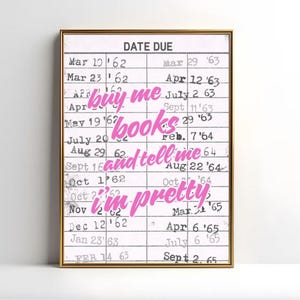 DATE DUE
Mar 10 '62 Mar 29 '63
Mar 23 '62 Apr 12 '63
July 2 63
buy me
Sept 11 '63
May 19 '62 29 '63
books
July 20 Feb. 7 '64
and tell me
Aug 29 62 64
Sept 16 Aug 22 '64
Oct 1 '62 Oct
i'm pretty
Nov 2 Mar 31 '65
Dec 12 '62 Apr 6 '65
Jan 23 63 July 6 '65
FEB 14 63 Sept 2. 65